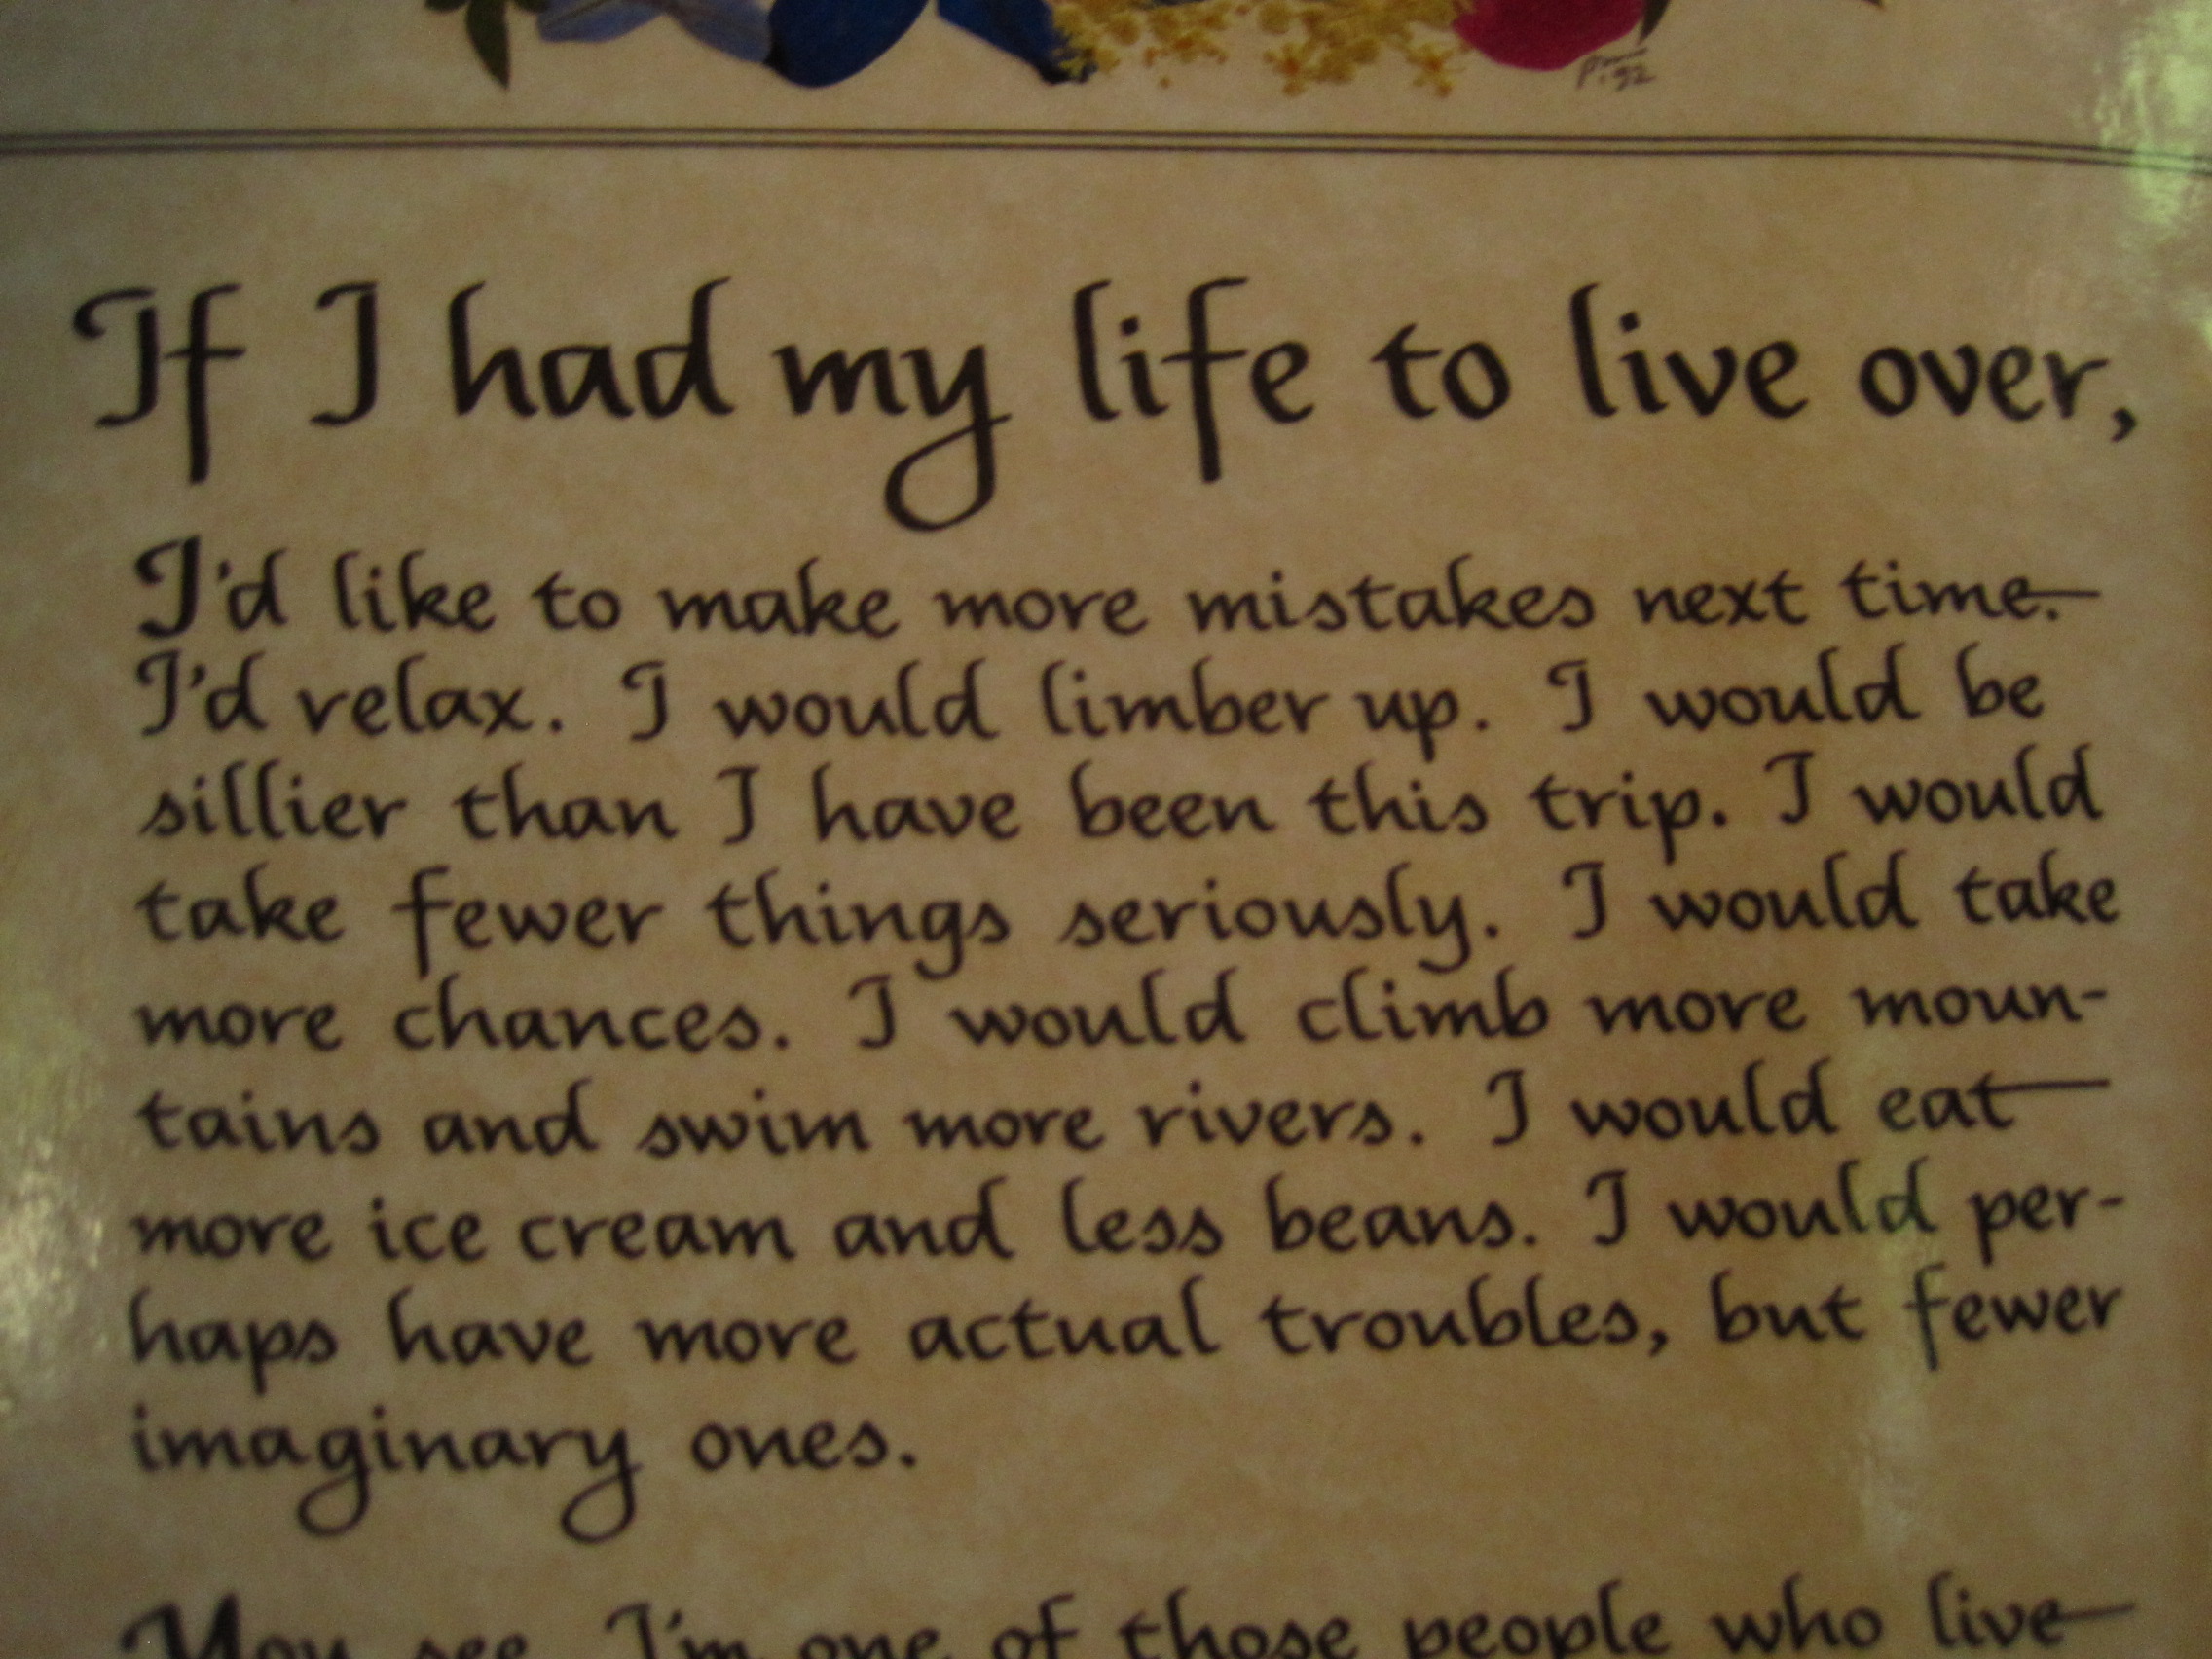 If I had my life to live over,
I'd like to make more mistakes next time.
I'd relax. I would limber up. I would be
sillier than I have been this trip. I would
take fewer things seriously. I would take
more chances. I would climb more moun-
tains and swim more rivers. I would eat
more ice cream and less beans. I would per-
haps have more actual troubles, but fewer
imaginary ones.
You see, I'm one of those people who live